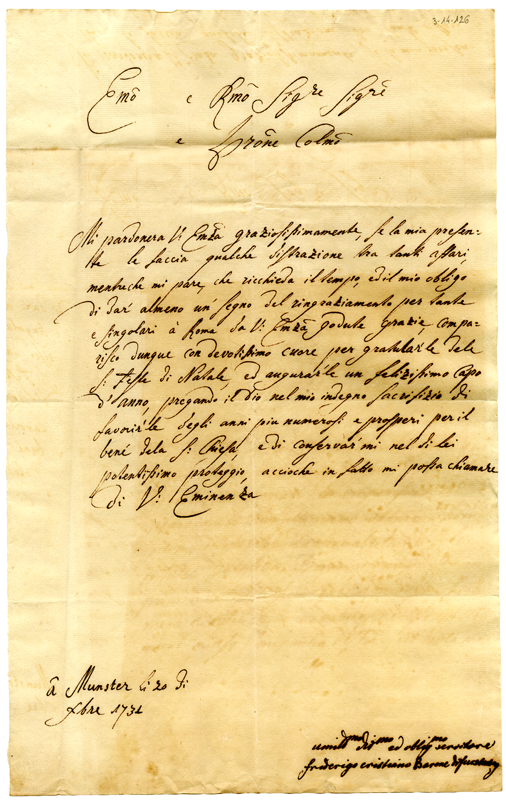 3-14-126
Emõ e Rmõ Sigre Sigrẽ
e Prõne Colmõ
Mi pardonera V: Emzã graziosissimamente, se la mia presen-
te le faccia qualche distrazione tra tanti affari,
mentreche mi pare, che ricchieda il tempo, ed il mio obligo
di dar' almeno un' segno del ringraziamento per tante
e singolari à Roma da V: Emzã godute grazie, compa-
risco dunque con devotissimo cuore per gratular'le dele
S: Feste di Natale, ed augurar'le un felizissimo capo
d'anno, pregando il Dio nel mio indegno sacrifizio di
favorir'le degli anni piu numerosi e prosperi per il
bene dela S: Chiesa, e di conservar'mi nel di lei
potentissimo proteggio, accioche in fatto mi possa chiamare
di V: Eminenza
â Munster li 20 di
Xbre 1731
umillmo devmo ed obligmo servitore
frederigo cristiano Barone di